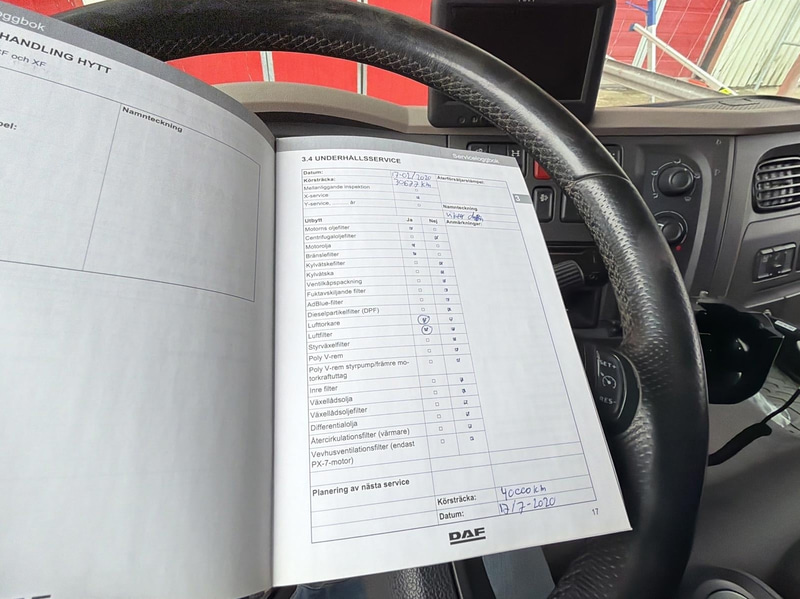 HANDLING HYTT
F och XF
Namnteckning
Serviceloggbok
3.4 UNDERHÅLLSSERVICE
Datum:
Körsträcka:
Återförsäljarstämpel:
Mellanliggande inspektion
X-service
Y-service, ........ år
3
Namnteckning
Anmärkningar:
Utbytt Ja Nej
Motorns oljefilter
Centrifugaloljefilter
Motorolja
Bränslefilter
Kylvätskefilter
Kylvätska
Ventilkåpspackning
Fuktavskiljande filter
AdBlue-filter
Dieselpartikelfilter (DPF)
Lufttorkare
Luftfilter
Styrväxelfilter
Poly V-rem
Poly V-rem styrpump/främre mo-
torkraftuttag
Inre filter
Växellådsolja
Växellådsoljefilter
Differentialolja
Återcirkulationsfilter (värmare)
Vevhusventilationsfilter (endast
PX-7-motor)
Planering av nästa service
Körsträcka: 40000 km
Datum: 17/7-2020
17
DAF
SET+
RES-